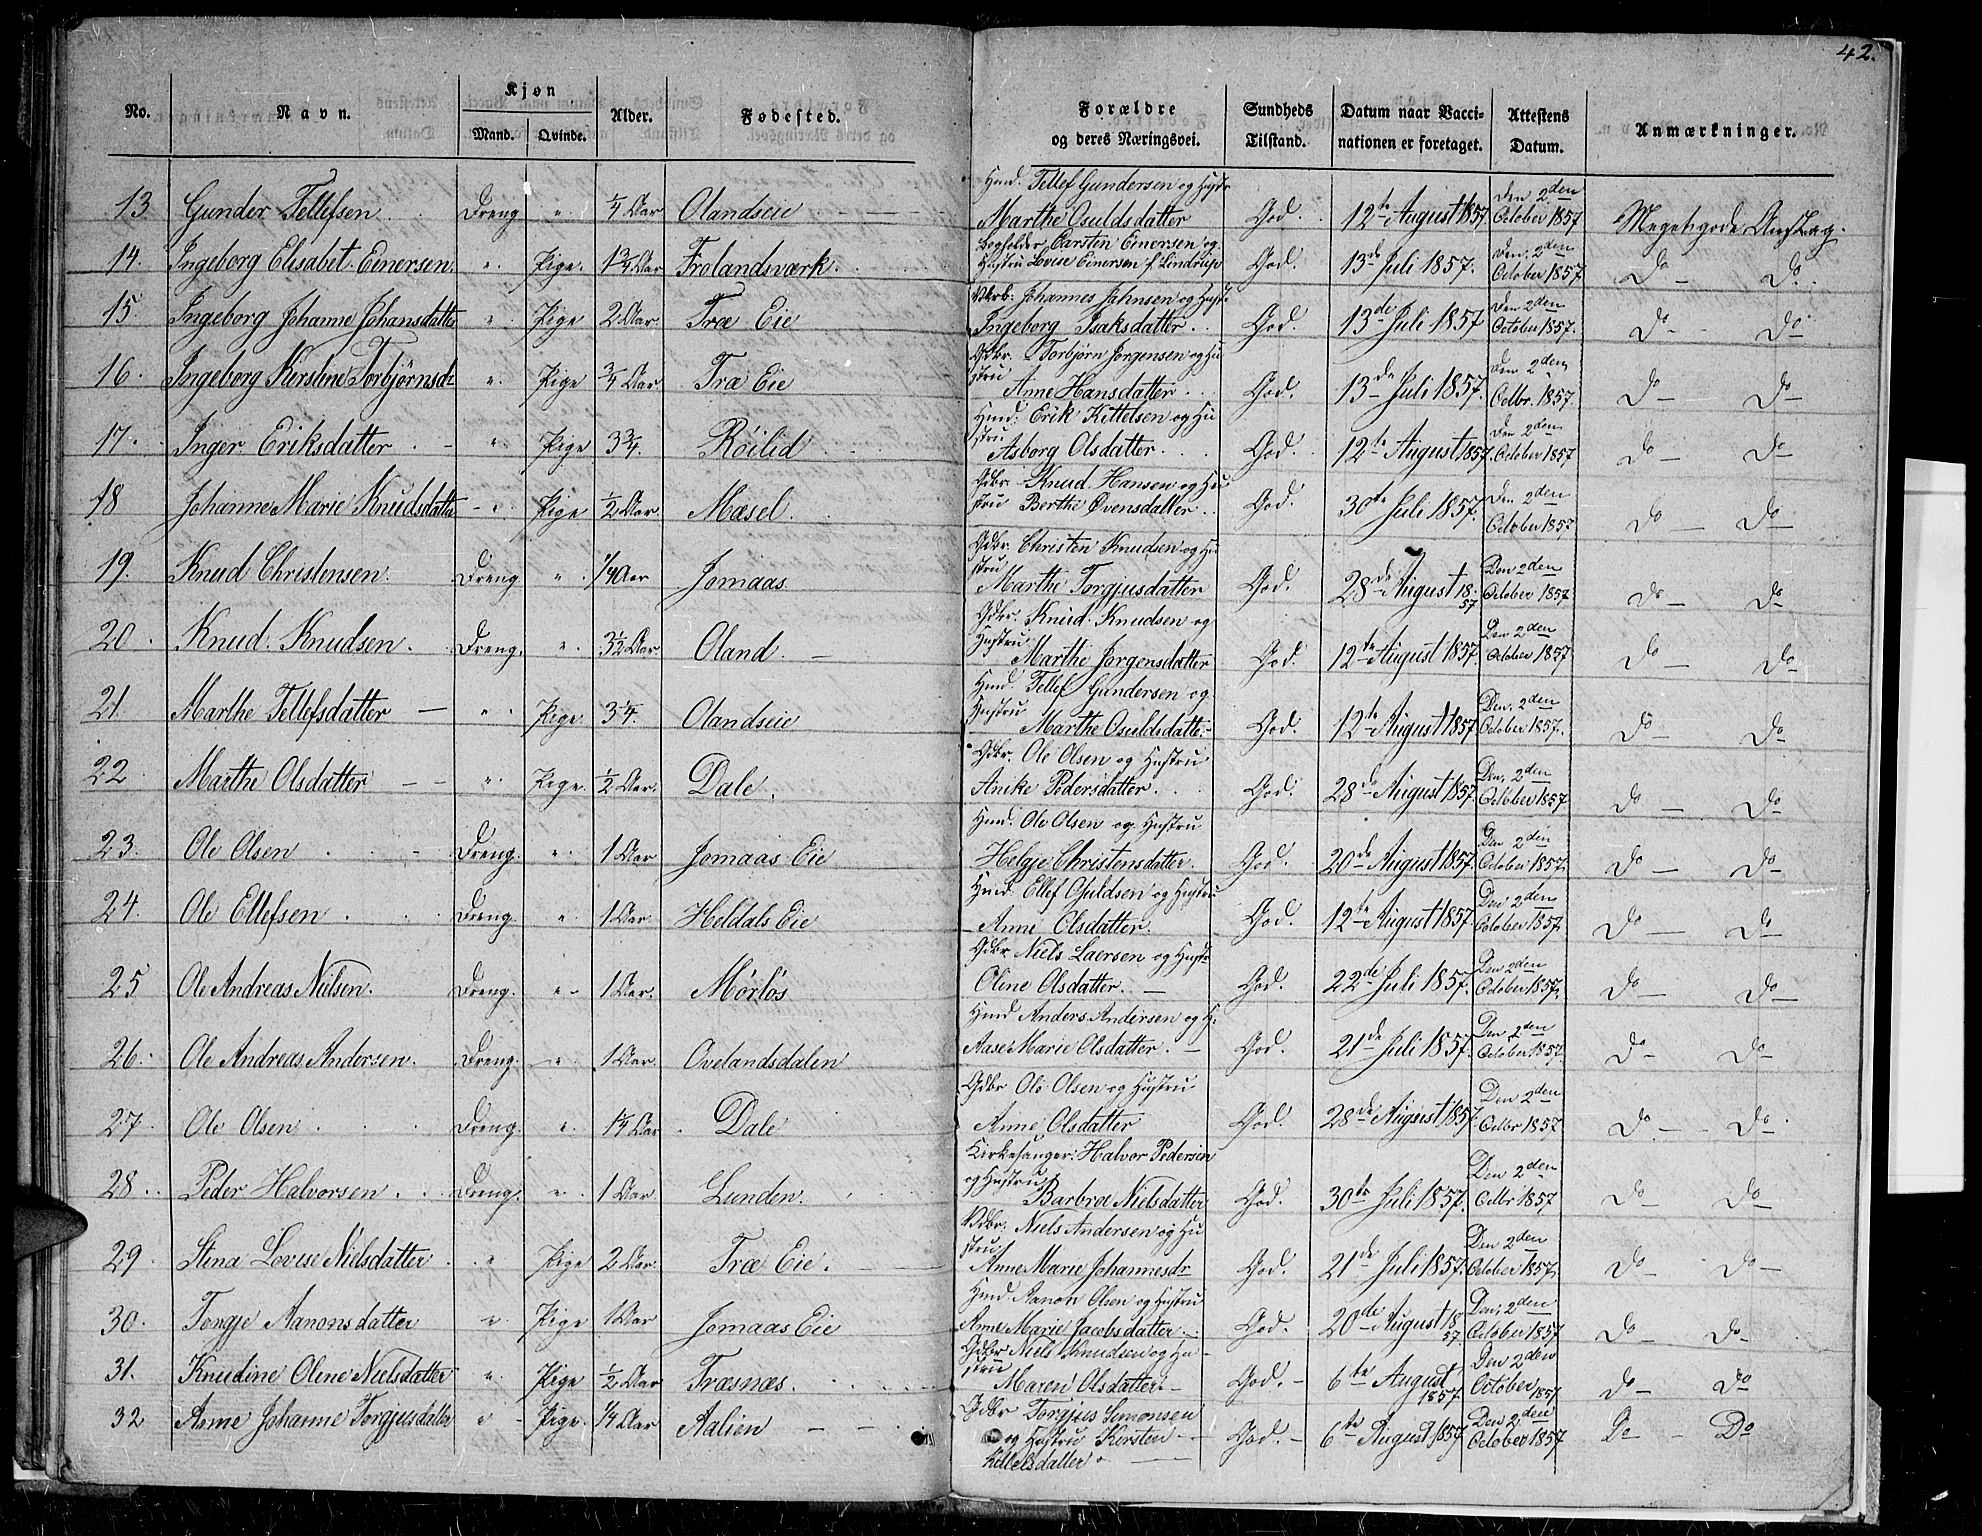 42.
No. Navn. Kjøn Alder. Fødested. Forældre Sundheds Datum naar Vacci- Attestens Anmærkninger.
Mand. Qvinde. og deres Næringsvei. Tilstand. nationen er foretaget. Datum.
Hmd. Tellef Gundersen og Hustr Den 2den
13 Gunder Tellefsen Dreng " 1/4 Aar Olandseie Marthe Osuldsdatter God. 12te August 1857 October 1857 Megetgode
Carsten Einersen og Den 2den
14. Ingeborg Elisabet Einersen. " Pige. 1 3/4 Aar Frolandsværk. Hustru Lovise Einersen f. Lindrup God. 13de Juli 1857. October 1857 Do Do
Johannes Johnsen og Hustr Den 2den
15. Ingeborg Johanne Johansdatter " Pige 2 Aar. Træ Eie Ingeborg Isaksdatter. God. 13de Juli 1857 October 1857. Do Do
Gdbr. Torbjørn Jørgensen og Hu Den 2den
16. Ingeborg Kirstine Torbjørnsdr " Pige 3/4 Aar Træ Eie stru Anne Hansdatter. God. 13de Juli 1857. Octbr. 1857 Do Do
Hmd. Erik Kittelsen og Hu Den 2den
17. Inger Eriksdatter " Pige 3 3/4. Röilid stru Asborg Olsdatter. God. 12te August 1857 October 1857 Do Do
Gdbr Knud Hansen og Hu Den 2den
18 Johanne Marie Knudsdatter " Pige 1/2 Aar. Mæsel. stru Berthe Øvensdatter God. 30te Juli 1857. October 1857 Do Do
Gdbr. Christen Knudsen og Hu Den 2den
19. Knud Christensen. Dreng " 1/4 Aar Jomaas. stru Marthe Torgjusdatter God. 28de August 1857 October 1857 Do Do
Gdbr. Knud Knudsen og Den 2den
20. Knud Knudsen. Dreng. " 3 1/2 Aar Oland. Hustru Marthe Jørgensdatter God. 12te August 1857 October 1857 Do Do
Hmd. Tellef Gundersen og Den 2den
21. Marthe Tellefsdatter " Pige 3 1/4. Olandseie Hustru Marthe Osuldsdatte. God. 12te August 1857 October 1857. Do Do
Gdbr. Ole Olsen og Hustru Den 2den
22 Marthe Olsdatter " Pige. 1/2 Aar. Dale. Anike Pedersdatter. God. 28de August 1857 October 1857 Do Do
Hmd. Ole Olsen og Hustru Den 2den
23. Ole Olsen Dreng. " 1 Aar Jomaas Eie Helgje Christensdatter. God. 20de August 1857. October 1857 Do Do
Hmd. Ellef Guldsen og Hustru Den 2den
24. Ole Ellefsen Dreng. " 1 Aar. Heldals Eie Anne Olsdatter God. 12te August 1857. October 1857 Do Do
Gdbr Niels Laersen og Hustr Den 2den
25 Ole Andreas Nilsen. Dreng. " 1 Aar. Mørløs Oline Olsdatter. God. 22de Juli 1857. October 1857. Do Do
Hmd Anders Andersen og H: Den 2den
26. Ole Andreas Andersen. Dreng. " 1 Aar. Ovelandsdalen Aase Marie Olsdatter. God. 21de Juli 1857. October 1857. Do Do
Gdbr Ole Olsen og Hustru Den 2den
27. Ole Olsen Dreng. " 1 1/4 Aar Dale Anne Olsdatter God. 28de August 1857. Octbr 1857 Do Do
Kirkesanger: Halvor Pedersen Den 2den
28. Peder Halvorsen. Dreng. " 1 Aar. Lunden. og Hustru Barbroe Nielsdatter God. 30te Juli 1857. Octbr 1857 Do Do
Niels Andersen og Hu Den 2den
29. Stina Lovise Nielsdatter " Pige 2 Aar. Træ Eie. stru Anne Marie Johannesdr God. 21de Juli 1857. October 1857. Do Do
Hmd Aanon Olsen og Hustru Den 2den
30. Tongje Aanonsdatter " Pige 1 Aar Jomaas Eie Anne Marie Jacobsdatter. God. 20de August 1857 October 1857 Do Do
Gdbr Niels Knudsen og Hu Den 2den
31. Knudine Oline Nielsdatter " Pige 1/2 Aar Træsnæs. stru Maren Olsdatter. God. 6te August 1857 October 1857 Do Do
Gdbr Torgjus Simonsen Den 2den
32 Anne Johanne Torgjusdatter " Pige. 1/4 Aar Aalien og Hustru Kirsten God. 6te August 1857 October 1857 Do Do
Kittelsdatter.